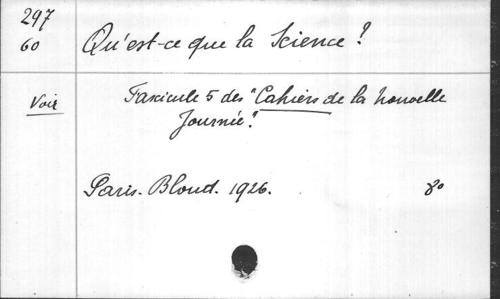 297
60
Qu'est-ce que la Science ?
Voir
Fascicule 5 des "Cahiers de la Nouvelle
Journée".
Paris. Bloud. 1926.
8°